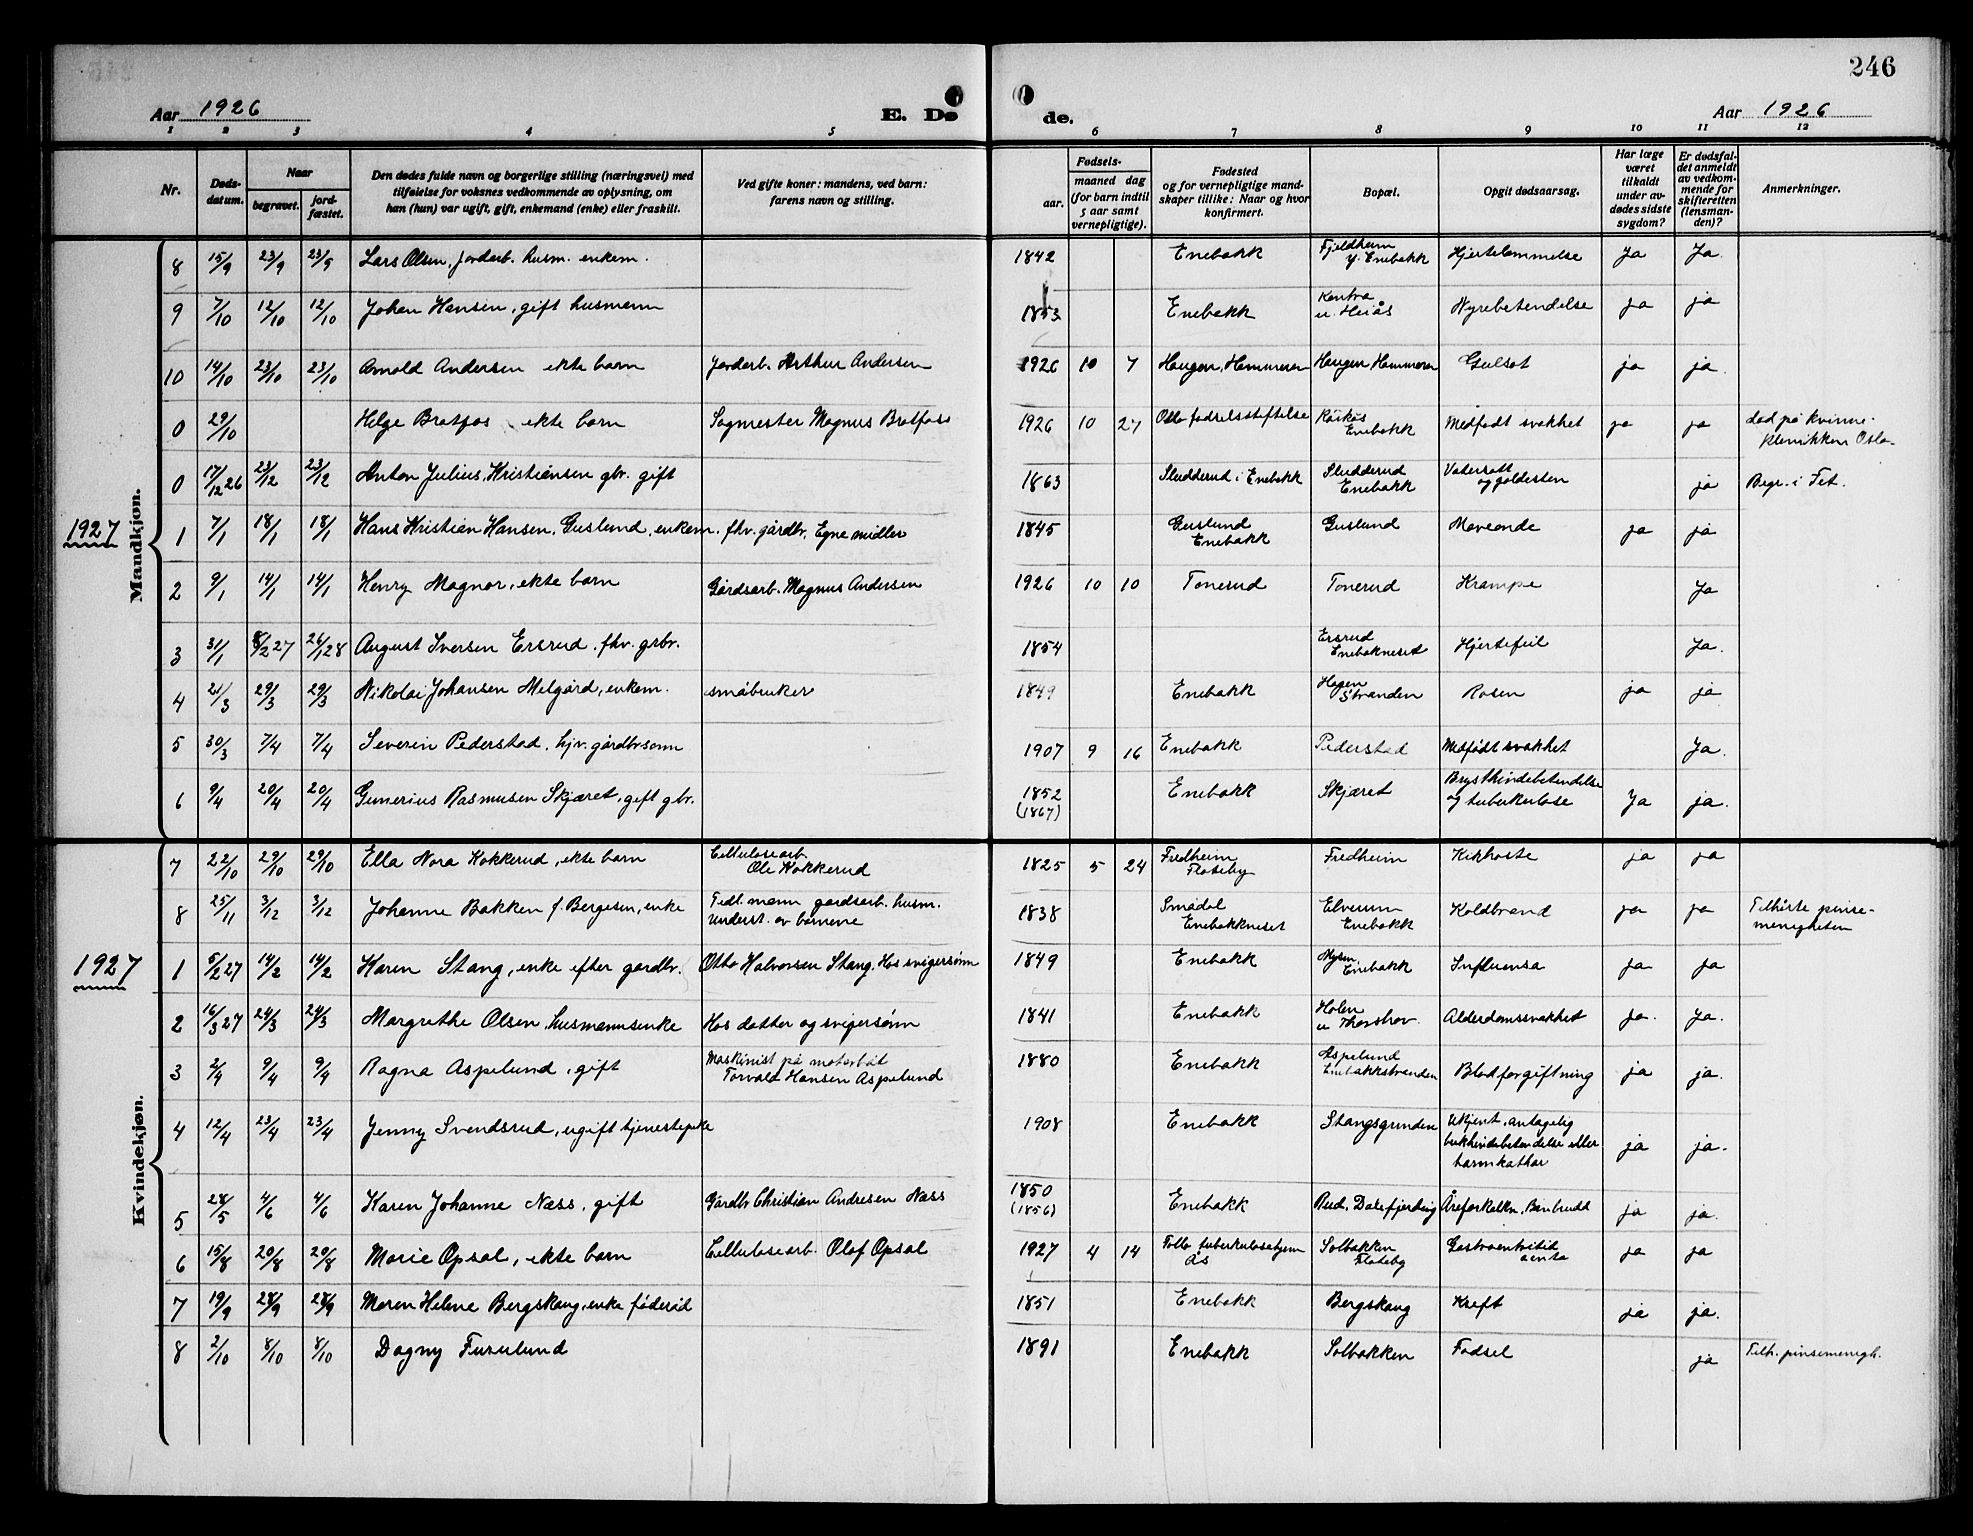 246
Aar 1926 E. Dø de. Aar 1926
1 2 3 4 5 6 7 8 9 10 11 12
Nr. Døds-datum. Naar begravet. jord-fæstet. Den dødes fulde navn og borgerlige stilling (næringsvei) med tilføielse for voksnes vedkommende av oplysning, om han (hun) var ugift, gift, enkemand (enke) eller fraskilt. Ved gifte koner: mandens, ved barn: farens navn og stilling. Fødsels- aar. maaned dag (for barn indtil 5 aar samt vernepligtige). Fødested og for vernepligtige mand-skaper tillike: Naar og hvor konfirmert. Bopæl. Opgit dødsaarsag. Har læge været tilkaldt under av-dødes sidste sygdom? Er dødsfal-det anmeldt av vedkom-mende for skifteretten (lensman-den)? Anmerkninger.
Mandkjøn.
8 15/9 23/9 23/9 Lars Olsen, jordarb. husm. enkem. 1842 Enebakk Fjeldheim y. Enebakk Hjertelammelse Ja Ja.
9 7/10 12/10 12/10 Johan Hansen, gift husmann 1853 Enebakk u. Heiås Nyrebetendelse ja ja
10 14/10 23/10 23/10 Arnold Andersen ekte barn Jordarb. Arthur Andersen 1926 10 7 Haugen, Hammeren Haugen, Hammeren Gulsot ja ja.
0 29/10 Helge Bratfos ekte barn Sagmester Magnus Bratfoss 1926 10 27 Oslo fødselsstiftelse Råkås Enebakk Medfødt svakhet ja ja død på kvinne-klinikken Oslo.
0 17/12 26 23/12 23/12 Anton Julius Kristiansen gbr. gift 1863 Sludderud i Enebakk Sludderud Enebakk Vatersott og galdesten ja Begr. i Fet.
1927
1 7/1 18/1 18/1 Hans Kristian Hansen, Guslund, enkem. fhv. gårdbr. Egne midler 1845 Guslund Enebakk Guslund Maveonde ja ja
2 9/1 14/1 14/1 Henry Magnor, ekte barn Gårdsarb. Magnus Andersen 1926 10 10 Tonerud Tonerud Krampe Ja
3 31/1 8/2 27 26/1 28 August Iversen Ersrud. fhv. grbr. 1854 Ersrud Enebakneset Hjertefeil Ja.
4 21/3 29/3 29/3 Nikolai Johansen Melgård, enkem. småbruker 1849 Enebakk Hagen Stranden Rosen ja ja
5 30/3 7/4 7/4 Severin Pederstad, hjv. gårdbr.sønn 1907 9 16 Enebakk Pederstad Medfødt svakhet Ja.
6 9/4 20/4 20/4 Gunerius Rasmusen Skjæret, gift gbr. 1852 (1867) Enebakk Skjæret Brysthindebetendelse og tuberkulose Ja ja.
Kvindekjøn.
7 22/10 29/10 29/10 Ella Nora Kokkerud, ekte barn Cellulosearb. Ole Kokkerud 1825 5 24 Fredheim Flateby Fredheim Kikhoste ja ja
8 25/11 3/12 3/12 Johanne Bakken f. Bergesen, enke Fedl. mann gardsarb. husm. Underst. av barnene 1838 Smådal Enebakkneset Elverum Enebakk Koldbrand ja ja Tilhørte pinse-menigheten
1927
1 5/2 27 14/2 14/2 Karen Stang, enke efter gardbr. Otto Halvorsen Stang. Hos svigersønn 1849 Enebakk Mysen, Enebakk Influensa ja ja
2 16/3 27 24/3 24/3 Margrethe Olsen, husmannsenke Hos datter og svigersønn 1841 Enebakk Holen u Thorshov. Alderdomssvakhet ja. Ja.
3 2/4 9/4 9/4 Ragna Aspelund, gift Maskinist på motorbåt Torvald Hansen Aspelund 1880 Enebakk Aspelund Enebakkstranden Blodforgiftning ja ja.
4 12/4 23/4 23/4 Jenny Svendsrud, ugift tjenestepike 1908 Enebakk Stangsgrunden Ukjent, antagelig bukhindebetendelse eller tarmkathar ja ja.
5 28/5 4/6 4/6 Karen Johanne Næss, gift Gårdbr Christian Andresen Næss 1850 (1856) Enebakk Rud, Dalefjerding Åreforkalkn. Benbrudd ja ja.
6 15/8 20/8 20/8 Marie Opsal, ekte barn Cellulosearb. Olaf Opsal 1927 4 14 Follo tuberkulosehjem Ås Solbakken Flateby Gastroenteritis acuta ja ja
7 19/9 28/9 28/9 Maren Helene Bergskaug, enke føderåd 1851 Enebakk Bergskaug Kreft ja ja.
8 2/10 8/10 8/10 Dagny Furulund 1891 Enebakk Solbakken Fødsel ja Tilh. pinsemenigh.